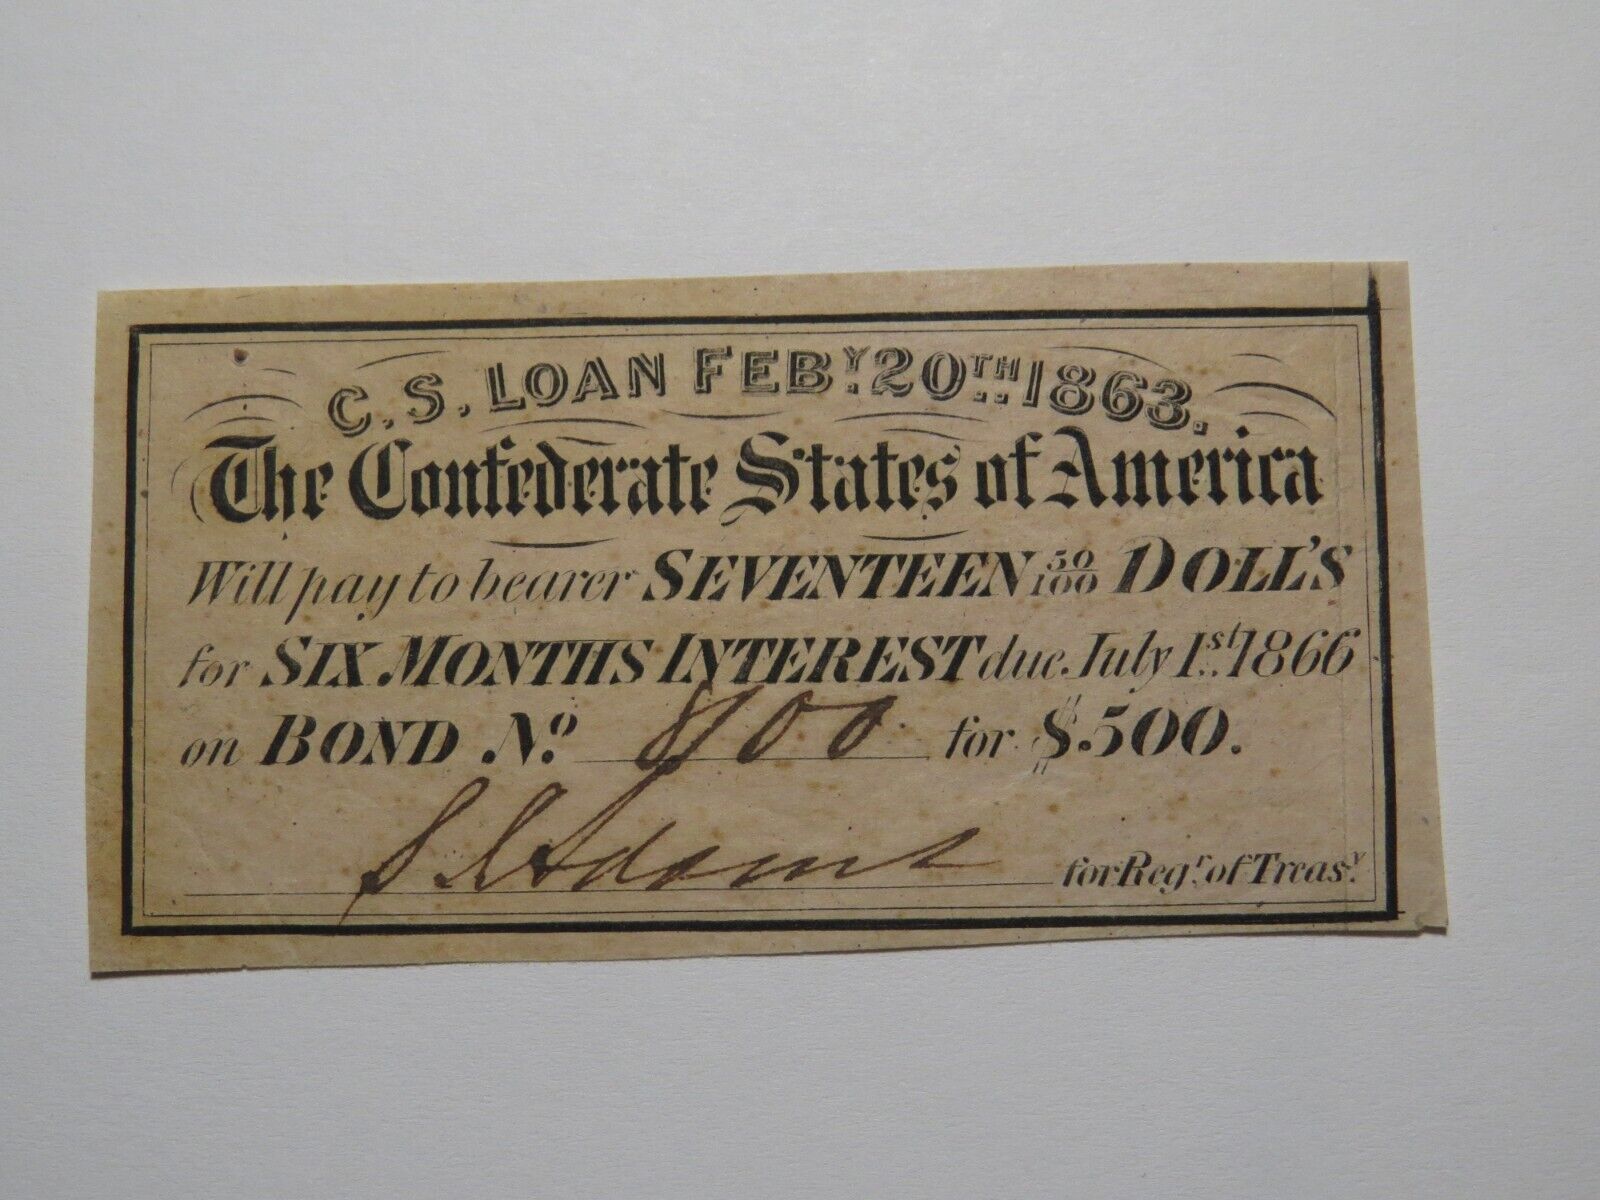 C. S. LOAN FEBY. 20TH.. 1863.
The Confederate States of America
Will pay to bearer SEVENTEEN 50/100 DOLL'S
for SIX MONTHS INTEREST due July 1st. 1866
on BOND No. 800 for $.500.
S Adams for Regr. of Treasy.